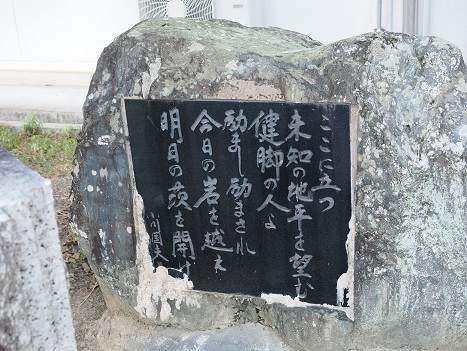 ここに立つ
未知の地平を望む
健脚の人よ
励まし励まされ
今日の岩を越え
明日の茨を開け
小川国夫